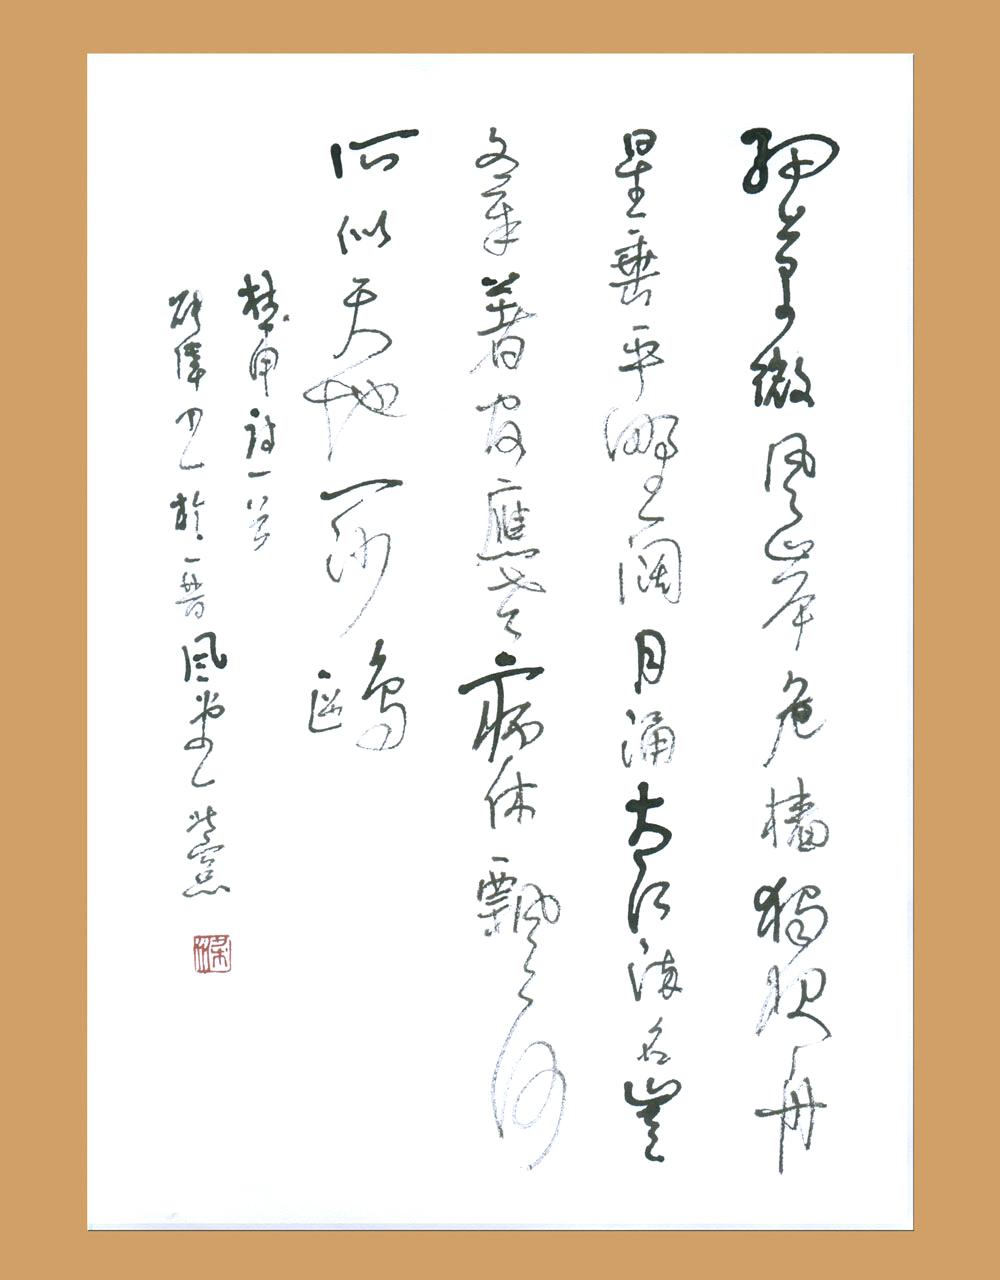 細草微風岸危檣獨夜舟
星垂平野闊月涌大江流名豈
文章著官應老病休飄飄何
所似天地一沙鷗
甫詩一首
於一 風堂